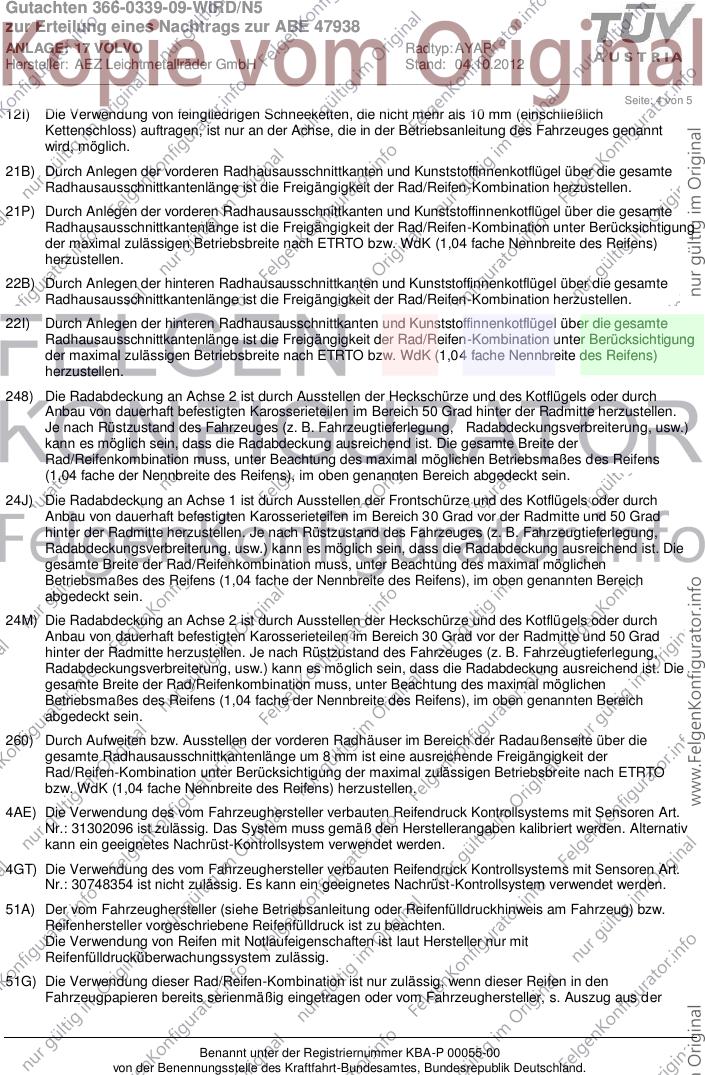 Gutachten 366-0339-09-WIRD/N5
zur Erteilung eines Nachtrags zur ABE 47938
ANLAGE: 17 VOLVO
Hersteller: AEZ Leichtmetallräder GmbH
Radtyp: AYAR
Stand: 04.10.2012
TÜV
AUSTRIA
Kopie vom Original
Seite: 4 von 5
12I) Die Verwendung von feingliedrigen Schneeketten, die nicht mehr als 10 mm (einschließlich
Kettenschloss) auftragen, ist nur an der Achse, die in der Betriebsanleitung des Fahrzeuges genannt
wird, möglich.
21B) Durch Anlegen der vorderen Radhausausschnittkanten und Kunststoffinnenkotflügel über die gesamte
Radhausausschnittkantenlänge ist die Freigängigkeit der Rad/Reifen-Kombination herzustellen.
21P) Durch Anlegen der vorderen Radhausausschnittkanten und Kunststoffinnenkotflügel über die gesamte
Radhausausschnittkantenlänge ist die Freigängigkeit der Rad/Reifen-Kombination unter Berücksichtigung
der maximal zulässigen Betriebsbreite nach ETRTO bzw. WdK (1,04 fache Nennbreite des Reifens)
herzustellen.
22B) Durch Anlegen der hinteren Radhausausschnittkanten und Kunststoffinnenkotflügel über die gesamte
Radhausausschnittkantenlänge ist die Freigängigkeit der Rad/Reifen-Kombination herzustellen.
22I) Durch Anlegen der hinteren Radhausausschnittkanten und Kunststoffinnenkotflügel über die gesamte
Radhausausschnittkantenlänge ist die Freigängigkeit der Rad/Reifen-Kombination unter Berücksichtigung
der maximal zulässigen Betriebsbreite nach ETRTO bzw. WdK (1,04 fache Nennbreite des Reifens)
herzustellen.
248) Die Radabdeckung an Achse 2 ist durch Ausstellen der Heckschürze und des Kotflügels oder durch
Anbau von dauerhaft befestigten Karosserieteilen im Bereich 50 Grad hinter der Radmitte herzustellen.
Je nach Rüstzustand des Fahrzeuges (z. B. Fahrzeugtieferlegung, Radabdeckungsverbreiterung, usw.)
kann es möglich sein, dass die Radabdeckung ausreichend ist. Die gesamte Breite der
Rad/Reifenkombination muss, unter Beachtung des maximal möglichen Betriebsmaßes des Reifens
(1,04 fache der Nennbreite des Reifens), im oben genannten Bereich abgedeckt sein.
24J) Die Radabdeckung an Achse 1 ist durch Ausstellen der Frontschürze und des Kotflügels oder durch
Anbau von dauerhaft befestigten Karosserieteilen im Bereich 30 Grad vor der Radmitte und 50 Grad
hinter der Radmitte herzustellen. Je nach Rüstzustand des Fahrzeuges (z. B. Fahrzeugtieferlegung,
Radabdeckungsverbreiterung, usw.) kann es möglich sein, dass die Radabdeckung ausreichend ist. Die
gesamte Breite der Rad/Reifenkombination muss, unter Beachtung des maximal möglichen
Betriebsmaßes des Reifens (1,04 fache der Nennbreite des Reifens), im oben genannten Bereich
abgedeckt sein.
24M) Die Radabdeckung an Achse 2 ist durch Ausstellen der Heckschürze und des Kotflügels oder durch
Anbau von dauerhaft befestigten Karosserieteilen im Bereich 30 Grad vor der Radmitte und 50 Grad
hinter der Radmitte herzustellen. Je nach Rüstzustand des Fahrzeuges (z. B. Fahrzeugtieferlegung,
Radabdeckungsverbreiterung, usw.) kann es möglich sein, dass die Radabdeckung ausreichend ist. Die
gesamte Breite der Rad/Reifenkombination muss, unter Beachtung des maximal möglichen
Betriebsmaßes des Reifens (1,04 fache der Nennbreite des Reifens), im oben genannten Bereich
abgedeckt sein.
260) Durch Aufweiten bzw. Ausstellen der vorderen Radhäuser im Bereich der Radaußenseite über die
gesamte Radhausausschnittkantenlänge um 8 mm ist eine ausreichende Freigängigkeit der
Rad/Reifen-Kombination unter Berücksichtigung der maximal zulässigen Betriebsbreite nach ETRTO
bzw. WdK (1,04 fache Nennbreite des Reifens) herzustellen.
4AE) Die Verwendung des vom Fahrzeughersteller verbauten Reifendruck Kontrollsystems mit Sensoren Art.
Nr.: 31302096 ist zulässig. Das System muss gemäß den Herstellerangaben kalibriert werden. Alternativ
kann ein geeignetes Nachrüst-Kontrollsystem verwendet werden.
4GT) Die Verwendung des vom Fahrzeughersteller verbauten Reifendruck Kontrollsystems mit Sensoren Art.
Nr.: 30748354 ist nicht zulässig. Es kann ein geeignetes Nachrüst-Kontrollsystem verwendet werden.
51A) Der vom Fahrzeughersteller (siehe Betriebsanleitung oder Reifenfülldruckhinweis am Fahrzeug) bzw.
Reifenhersteller vorgeschriebene Reifenfülldruck ist zu beachten.
Die Verwendung von Reifen mit Notlaufeigenschaften ist laut Hersteller nur mit
Reifenfülldrucküberwachungssystem zulässig.
51G) Die Verwendung dieser Rad/Reifen-Kombination ist nur zulässig, wenn dieser Reifen in den
Fahrzeugpapieren bereits serienmäßig eingetragen oder vom Fahrzeughersteller, s. Auszug aus der
Benannt unter der Registriernummer KBA-P 00055-00
von der Benennungsstelle des Kraftfahrt-Bundesamtes, Bundesrepublik Deutschland.
FELGEN
KONFIGURATOR
FelgenKonfigurator.info
nur gültig im Original
www.FelgenKonfigurator.info